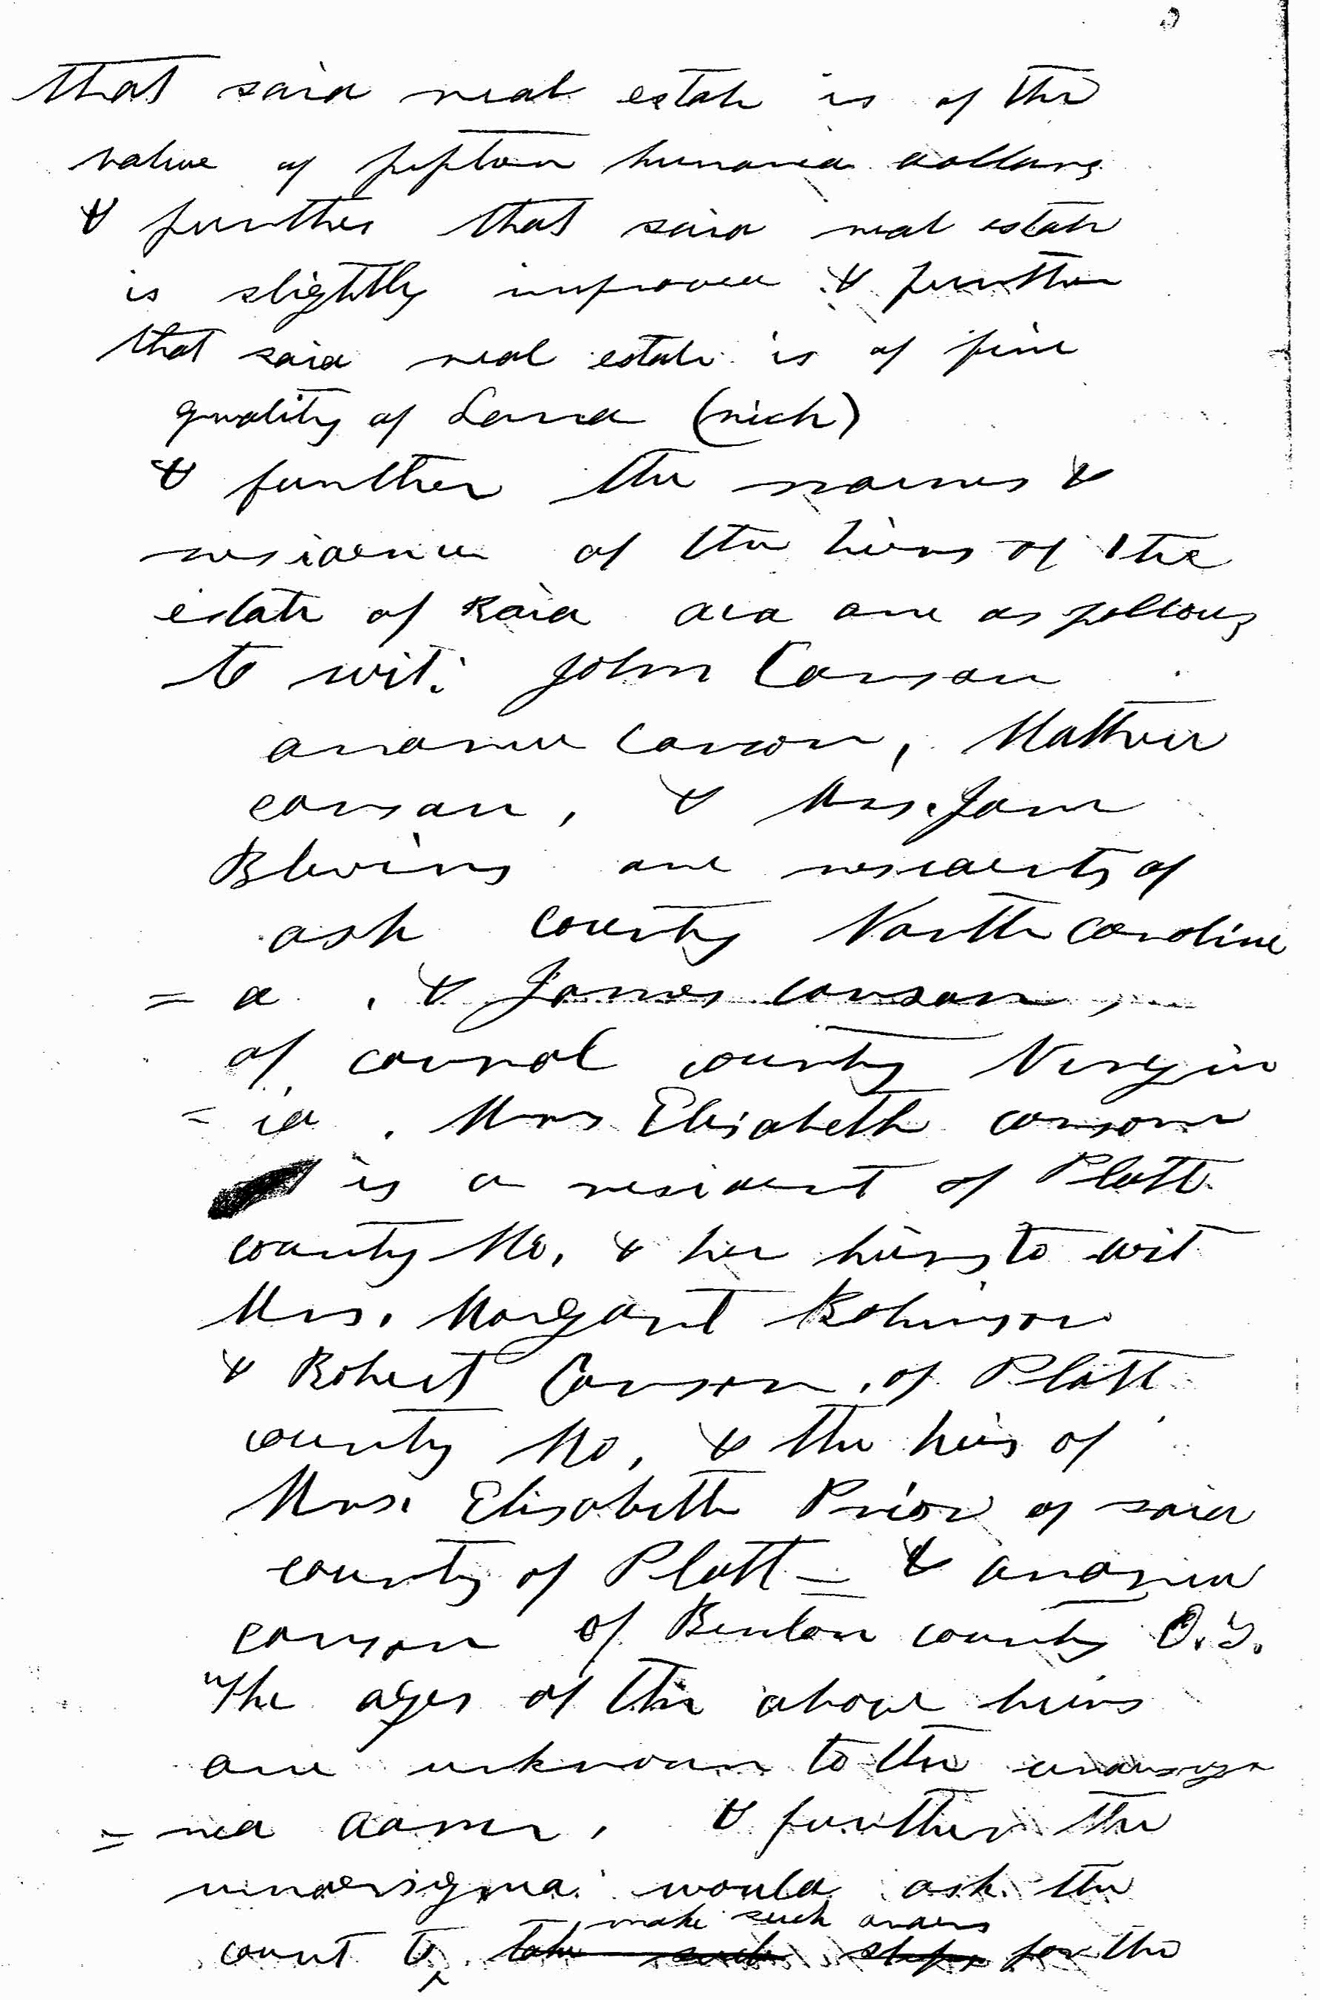 that said real estate is of the
value of fifteen hundred dollars
& further that said real estate
is slightly improved & further
that said real estate is of fine
quality of Land (rich)
& further the names &
residence of the heirs of the
estate of said decd are as follows
to wit: John Carson
andrew Carson, Mathew
carson, & Mrs. Jane
Blevins are residents of
ash county North caroline
= a. & James carson,
of carrol county Virgin
= ia. Mrs Elisabeth carson
is a resident of Platt
county Mo, & her heirs to wit
Mrs. Margaret Robinson
& Robert Carson, of Platt
county Mo, & the heirs of
Mrs. Elisabeth Prior of said
county of Platt = & andrew
carson of Benton county O.T.
The ages of the above heirs
are unknown to the undersig
= ned admr, & further the
undersigned would ask the
make such orders
court to take such steps for the